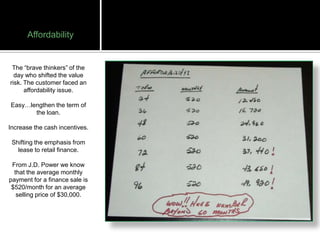 Affordability
The “brave thinkers” of the
day who shifted the value
risk. The customer faced an
affordability issue.
Easy…lengthen the term of
the loan.
Increase the cash incentives.
Shifting the emphasis from
lease to retail finance.
From J.D. Power we know
that the average monthly
payment for a finance sale is
$520/month for an average
selling price of $30,000.
AFFORDABILITY
TERM MONTHLY AMOUNT
24 520 12,480
36 520 18,720
48 520 24,960
60 520 31,200
72 520 37,440!
84 520 43,680!
96 520 49,920!
WOW!! HUGE NUMBER
BEYOND 60 MONTHS